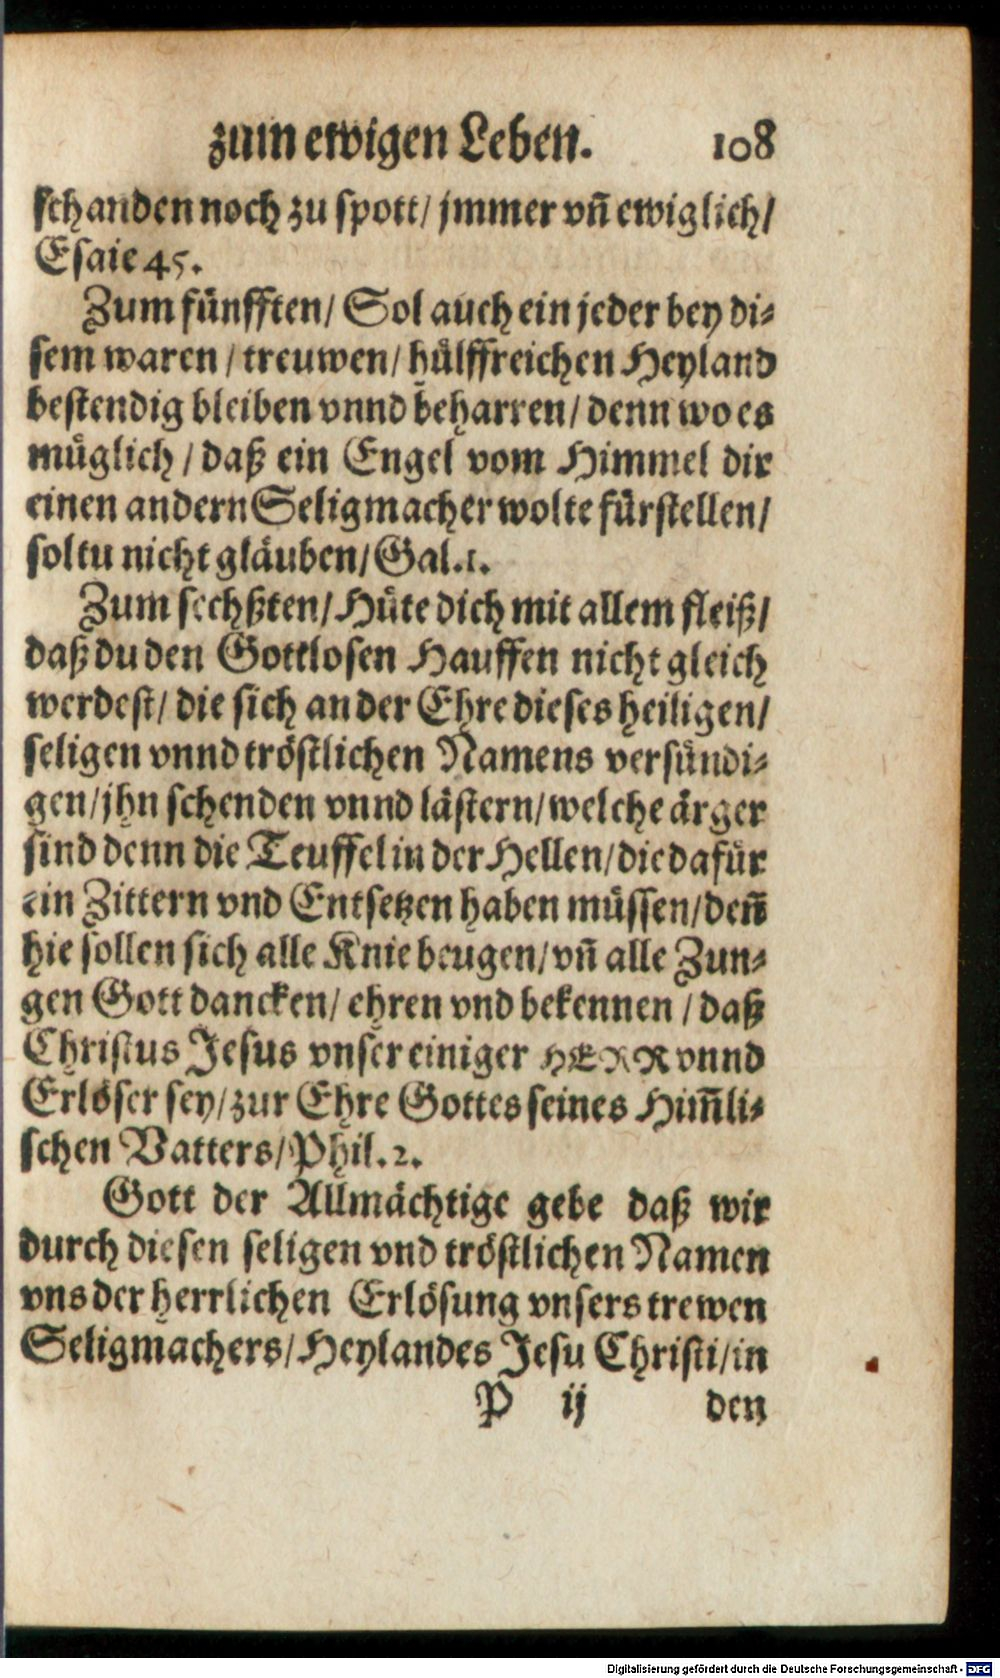 zum ewigen Leben. 108
schanden noch zu spott/ jmmer vñ ewiglich/
Esaie 45.
Zum fünfften/ Sol auch ein jeder bey di-
sem waren / treuwen/ hülffreichen Heyland
bestendig bleiben vnnd beharren/ denn wo es
müglich / daß ein Engel vom Himmel dir
einen andern Seligmacher wolte fürstellen/
soltu nicht gläuben/ Gal. 1.
Zum sechßten/ Hüte dich mit allem fleiß/
daß du den Gottlosen Hauffen nicht gleich
werdest/ die sich an der Ehre dieses heiligen/
seligen vnnd tröstlichen Namens versündi-
gen/ jhn schenden vnnd lästern/ welche ärger
sind denn die Teuffel in der Hellen/ die dafür
ein Zittern vnd Entsetzen haben müssen/ deñ
hie sollen sich alle Knie beugen/ vñ alle Zun-
gen Gott dancken/ ehren vnd bekennen / daß
Christus Jesus vnser einiger HERR vnnd
Erlöser sey/ zur Ehre Gottes seines Him̃li-
schen Vatters/ Phil. 2.
Gott der Allmächtige gebe daß wir
durch diesen seligen vnd tröstlichen Namen
vns der herrlichen Erlösung vnsers trewen
Seligmachers/ Heylandes Jesu Christi/ in
P ij den
Digitalisierung gefördert durch die Deutsche Forschungsgemeinschaft - DFG